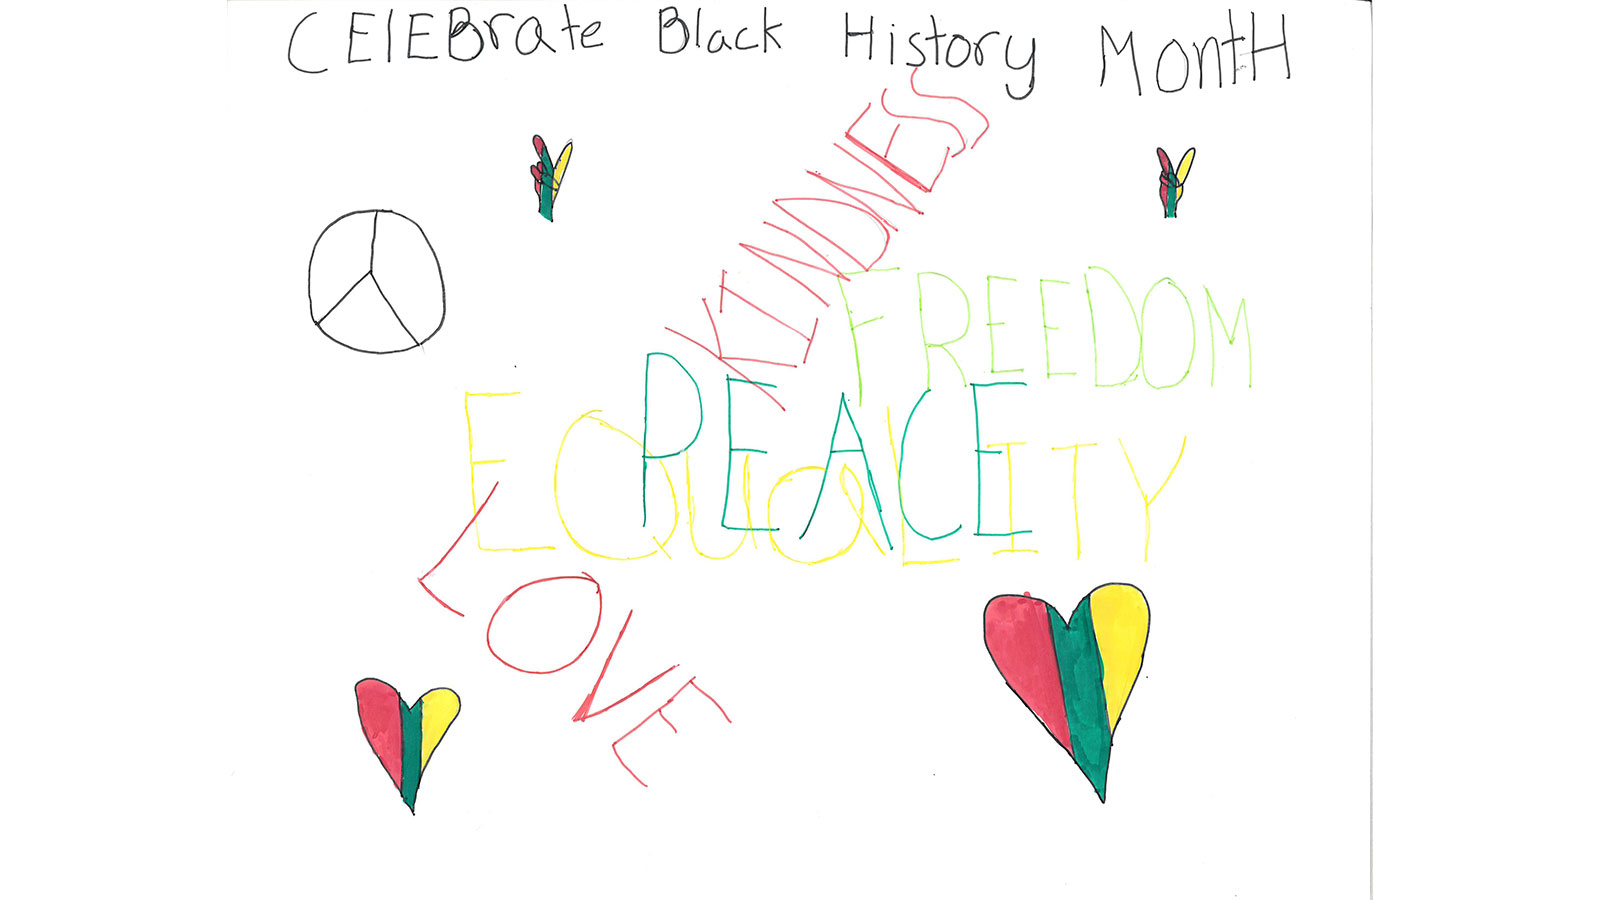 CElEBrate Black History MontH
KINDNESS
FREEDOM
PEACE
EQuaLITY
LOVE